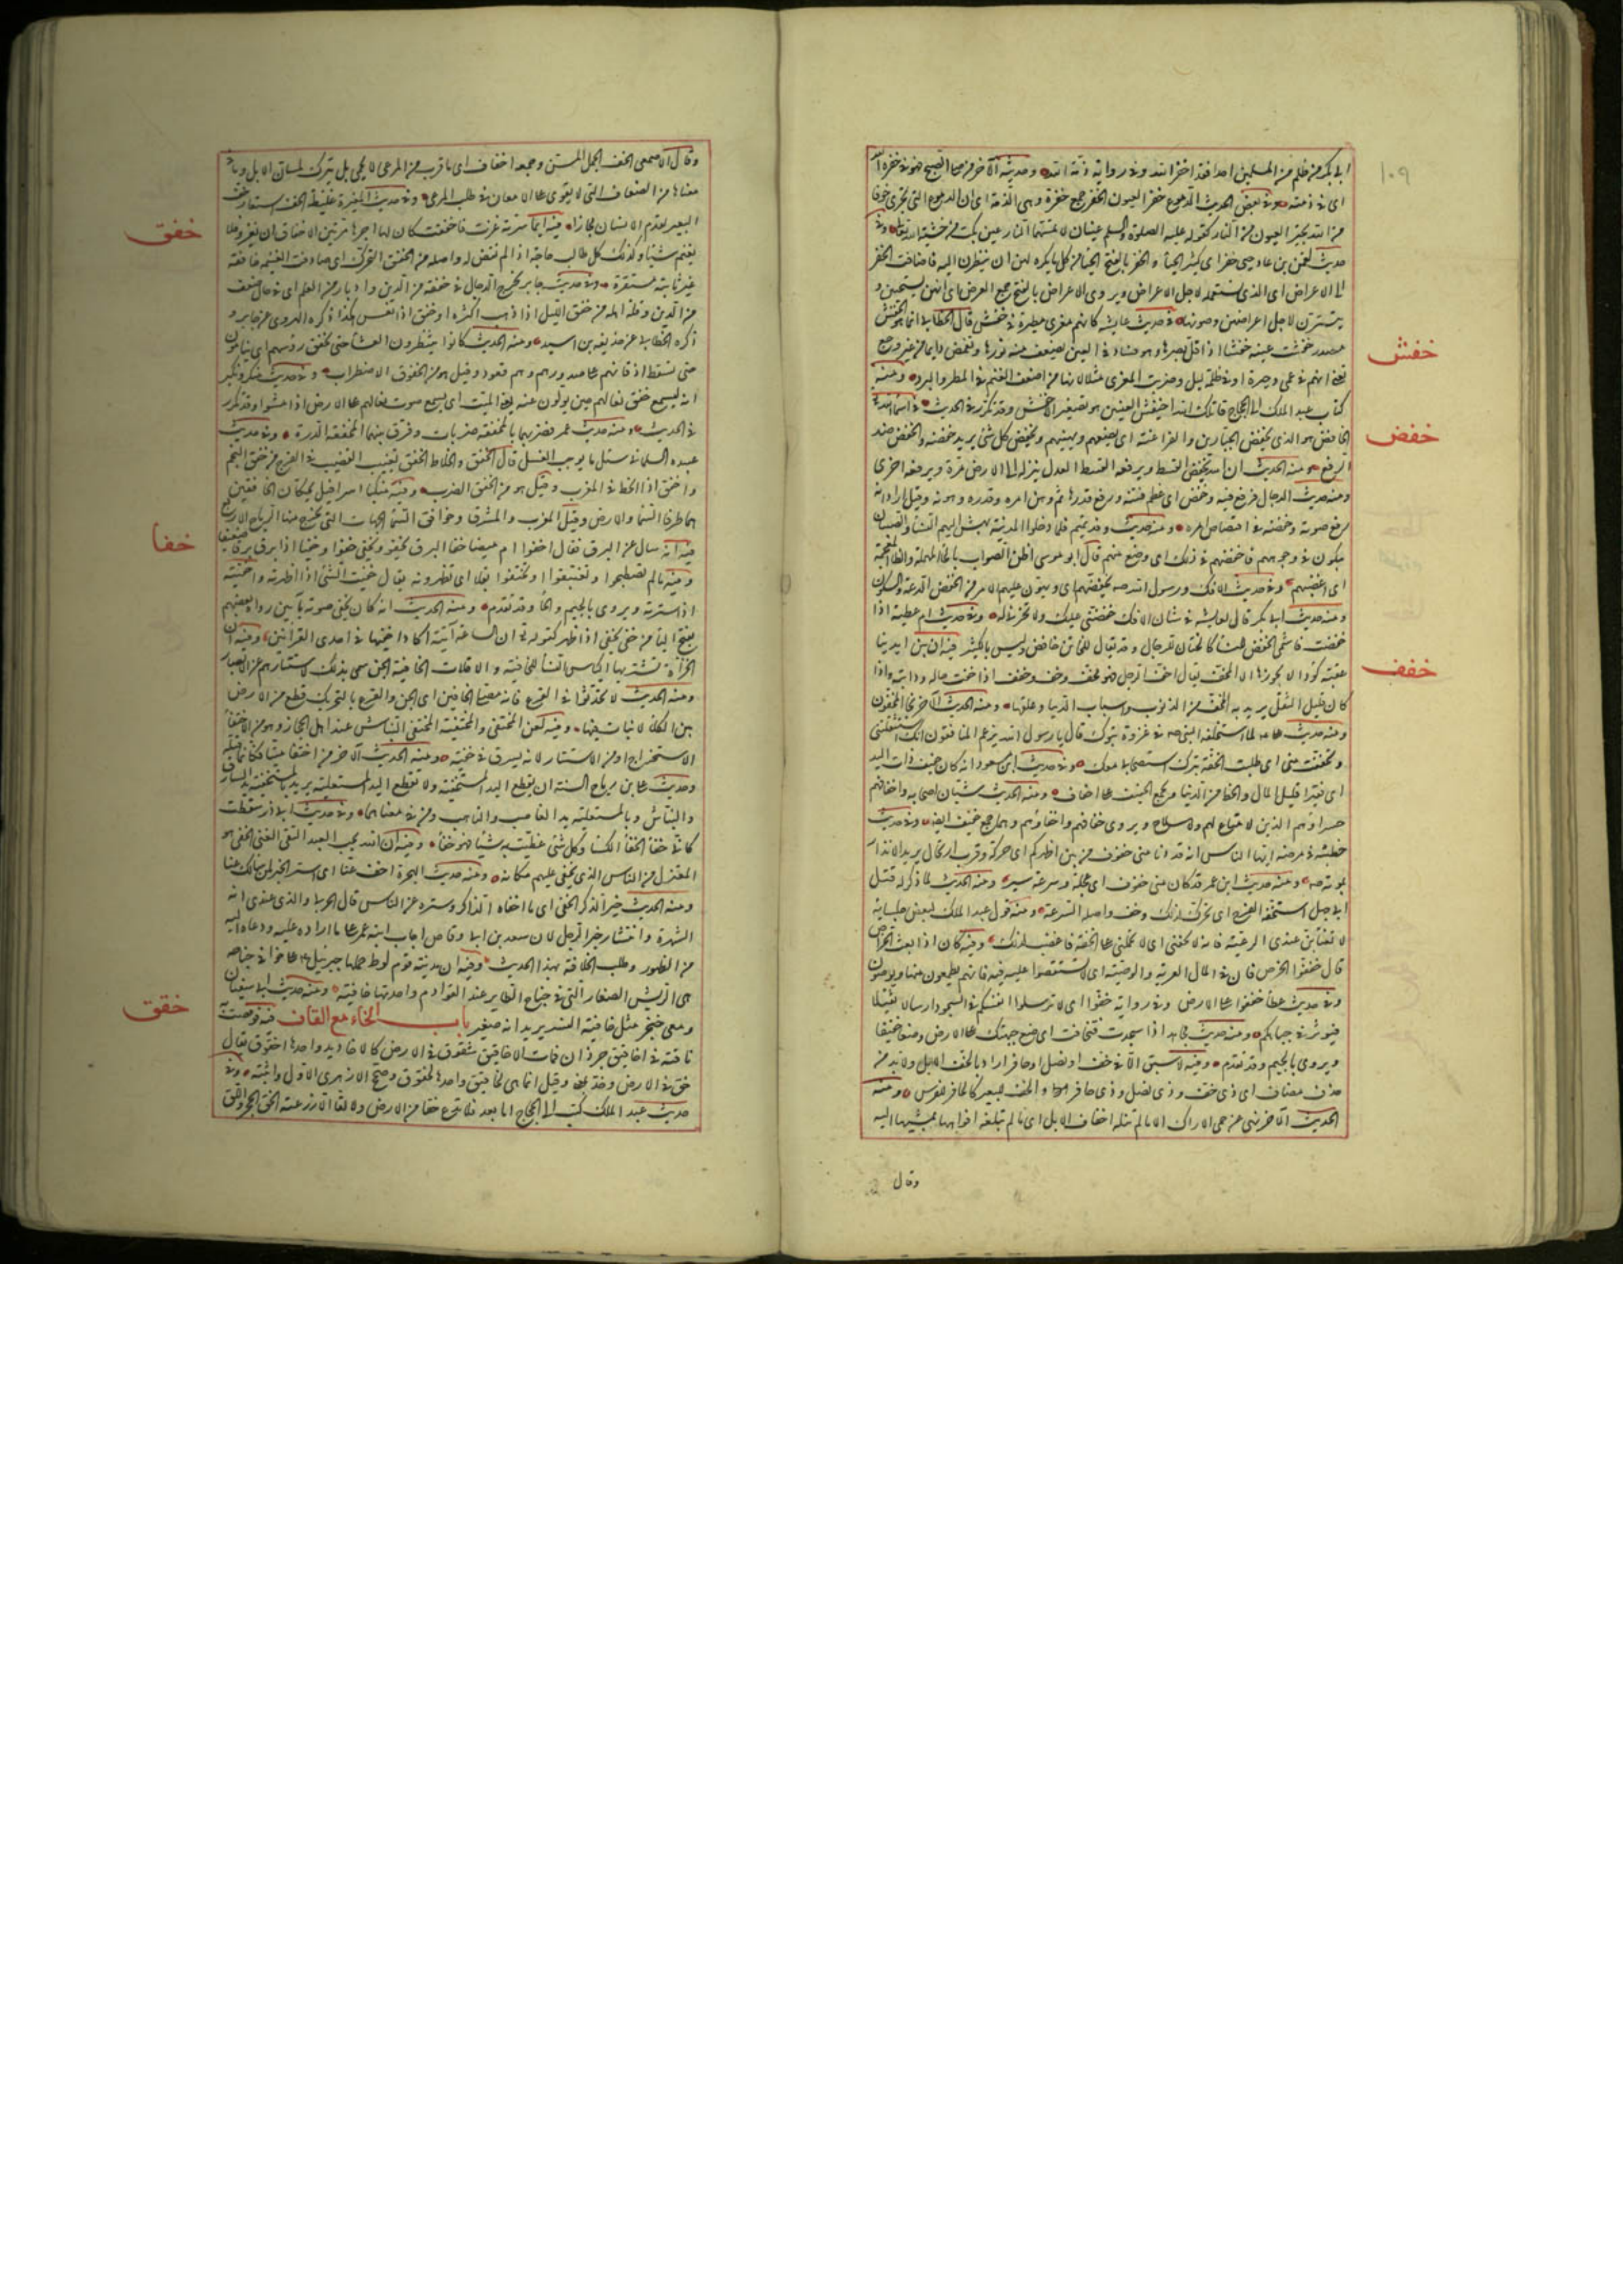 ١٠٩
ابي بكر من ظلم من المسلمين احدا فقد اخفر الله وفي رواية ذمة الله وحديثه الآخر من صلى الصبح فهو في خفرة الله
اي في ذمته وفي بعض الحديث الدموع خفر العيون الخفر جمع خفرة وهي الذمة اي ان الدموع التي تجري خوفا
من الله تجير العيون من النار كقوله عليه الصلوة والسلم عينان لا تمسهما النار عين بكت من خشية الله تعالى وفي
حديث لقمن بن عاد حيي خفر اي كثير الحيا والخفر بالفتح الحيا من كل ما يكره لهن ان ينظرن اليه فاضافت الخفر
الى الاعراض اي الذي تستعمله لاجل الاعراض ويروى الاعراض بالفتح جمع العرض اي انهن يستحيين و
يتسترن لاجل اعراضهن وصونها في حديث عايشه كانهم معزى مطيرة في خفش قال الخطابي انما هو الخفش
خفش
مصدر خفشت عينه خفشا اذا قل بصرها وهو فساد في العين يضعف منه نورها وتغمض دايما من غير وجع
تعني انهم في عمى وحيرة او في ظلمة ليل وضربت المعزى مثلا لانها من اضعف الغنم في المطر والبرد ومنه
كتاب عبد الملك الى الحجاج قاتلك الله اخيفش العينين هو تصغير الاخفش وقد تكرر في الحديث في اسما الله تعالى
خفض
الخافض هو الذي يخفض الجبارين والفراعنة اي يضعهم ويهينهم ويخفض كل شئ يريد خفضه والخفض ضد
الرفع ومنه الحديث ان الله يخفض القسط ويرفعه القسط العدل ينزله الى الارض مرة ويرفعه اخرى
ومنه حديث الدجال فرفع فيه وخفض اي عظم فتنته ورفع قدرها ثم وهن امره وقدره وهونه وقيل اراد انه
رفع صوته وخفضه في اقتصاص امره ومنه حديث وفد تميم فلما دخلوا المدينة بهش اليهم النسا والصبيان
يبكون في وجوههم فاخفضهم ذلك اي وضع منهم قال ابو موسى اظن الصواب بالحا المهملة والظا المعجمة
اي اغضبهم وفي حديث الافك ورسول الله صه يخفضهم اي يهون عليهم الامر من الخفض الدعة والسكون
ومنه حديث ابي بكر قال لعايشه في شان الافك خفضي عليك ولا تحزني له وفي حديث ام عطية اذا
خفضت فاشمي الخفض للنسا كالختان للرجال وقد يقال للخاتن خافض وليس بالكثير فيه ان بين ايدينا
خفف
عقبة كؤدا لا يجوزها الا المخف يقال اخف الرجل فهو مخف وخف وخفيف اذا خفت حاله ودابته واذا
كان قليل الثقل يريد به المخف من الذنوب واسباب الدنيا وعلقها ومنه الحديث الآخر نجا المخفون
ومنه حديث علي لما استخلفه النبي صه في غزوة تبوك قال يا رسول الله يزعم المنافقون انك استثقلتني
وتخففت مني اي طلبت الخفة بترك استصحابي معك وفي حديث ابن مسعود انه كان خفيف ذات اليد
اي فقيرا قليل المال والحظ من الدنيا ويجمع الخفيف على اخفاف ومنه الحديث شبان اصحابه واخفافهم
حسرا وهم الذين لا متاع لهم ولا سلاح ويروى خفافهم واخفاؤهم وهما جمع خفيف ايضا وفي حديث
خطبته في مرضه ايها الناس انه قد دنا مني خفوف من بين اظهركم اي حركة وقرب ارتحال يريد الانذار
بموته صه ومنه حديث ابن عمر قد كان مني خفوف اي عجلة وسرعة سير ومنه الحديث لما ذكر له قتل
ابي جهل استخفه الفرح اي تحرك لذلك وخف واصله السرعة ومنه قول عبد الملك لبعض جلسايه
لا تغتابن عندي الرعية فانه لا يخفني اي لا يحملني على الخفة فاغضب لذلك وفيه كان اذا بعث الخراص
قال خففوا الخرص فان في المال العرية والوصية اي لا تستقصوا عليهم فيه فانهم يطعمون منها ويوصون
وفي حديث عطا خففوا على الارض وفي رواية خفوا اي لا ترسلوا انفسكم في السجود ارسالا ثقيلا
فيؤثر في جباهكم ومنه حديث مجاهد اذا سجدت فتخاف اي ضع جبهتك على الارض وضعا خفيفا
ويروى بالجيم وقد تقدم وفيه لا سبق الا في خف او نصل او حافر اراد بالخف الابل ولا بد من
حذف مضاف اي ذي خف وذي نصل وذي حافر والخف للبعير كالحافر للفرس ومنه
الحديث الآخر نهى عن حمي الاراك الا ما لم تنله اخفاف الابل اي ما لم تبلغه افواهها بمشيها اليه
وقال
وقال الاصمعي الخف الجمل المسن وجمعه اخفاف اي ما قرب من المرعى لا يحمى بل يترك لمسان الابل وما في
معناها من الضعاف التي لا تقوى على الامعان في طلب المرعى وفي حديث المغيرة غليظة الخف استعار خف
خفق
البعير لقدم الانسان مجازا فيه ايما سرية غزت فاخفقت كان لها اجرها مرتين الاخفاق ان يغزو فلا
يغنم شيئا وكذلك كل طالب حاجة اذا لم تقض له واصله من الخفق التحرك اي صادفت الغنيمة خافقة
غير ثابتة مستقرة وفي حديث جابر يخرج الدجال في خفقة من الدين وادبار من العلم اي في حال ضعف
من الدين وقلة اهله من خفق الليل اذا ذهب اكثره او خفق اذا نعس هكذا ذكره الهروي عن جابر و
ذكره الخطابي عن حذيفه بن اسيد ومنه الحديث كانوا ينتظرون العشا حتى تخفق رؤسهم اي ينامون
حتى تسقط اذقانهم على صدورهم وهم قعود وقيل هو من الخفوق الاضطراب وفي حديث منكر ونكير
انه ليسمع خفق نعالهم حين يولون عنه يعني الميت اي يسمع صوت نعالهم على الارض اذا مشوا وقد تكرر
في الحديث ومنه حديث عمر فضربهما بالمخفقة ضربات وفرق بينهما المخفقة الدرة وفي حديث
عبيده السلماني سئل ما يوجب الغسل قال الخفق والخلاط الخفق تغييب القضيب في الفرج من خفق النجم
واخفق اذا انحط في المغرب وقيل هو من الخفق الضرب وفيه منكبا اسرافيل يحكان الخافقين
هما طرفا السما والارض وقيل المغرب والمشرق وخوافق السما الجهات التي تخرج منها الرياح الاربع
خفا
فيه انه سال عن البرق فقال اخفوا ام وميضا خفا البرق يخفو ويخفى خفوا وخفيا اذا برق برقا ضعيفا
وفيه ما لم تصطبحوا او تغتبقوا او تختفوا بقلا اي تظهرونه يقال خفيت الشئ اذا اظهرته واخفيته
اذا سترته ويروى بالجيم والحا وقد تقدم ومنه الحديث انه كان يخفي صوته بآمين رواه بعضهم
بفتح اليا من خفى يخفي اذا ظهر كقوله تع ان الساعة آتية اكاد اخفيها في احدى القراتين وفيه ان
الحزاة تشتريها اكايس النسا للخافية والاقلات الخافية الجن سمي بذلك لاستتارهم عن الابصار
ومنه الحديث لا تحدثوا في القرع فانه مصلى الخافين اي الجن والقرع بالتحريك قطع من الارض
بين الكلأ لا نبات فيها وفيه لعن المختفي والمختفية المختفي النباش عند اهل الحجاز وهو من الاختفا
الاستخراج او من الاستتار لانه يسرق في خفية ومنه الحديث الآخر من اختفى ميتا فكانما قتله
وحديث علي بن رباح السنة ان تقطع اليد المستخفية ولا تقطع اليد المستعلية يريد بالمستخفية يد السارق
والنباش وبالمستعلية يد الغاصب والناهب ومن في معناهما وفي حديث ابي ذر سقطت
كاني خفا الخفا الكسا وكل شئ غطيت به شيئا فهو خفا وفيه ان الله يحب العبد التقي الغني الخفي هو
المعتزل من الناس الذي يخفى عليهم مكانه ومنه حديث الهجرة اخف عنا اي استر الخبر لمن سالك عنا
ومنه الحديث خير الذكر الخفي اي ما اخفاه الذاكر وستره عن الناس قال الحربي والذي عندي انه
الشهرة وانتشار خبر الرجل لان سعد بن ابي وقاص اجاب ابنه عمر على ما اراده عليه ودعاه اليه
من الظهور وطلب الخلافة بهذا الحديث وفيه ان مدينة قوم لوط حملها جبرئيل ع على خوافي جناحه
هي الريش الصغار التي في جناح الطاير عند القوادم واحدتها خافية ومنه حديث ابي سفيان
خقق
ومعي خنجر مثل خافية النسر يريد انه صغير باب الخاء مع القاف فيه فوقصت به
ناقته في اخاقيق جرذان فمات الاخاقيق شقوق في الارض كالاخاديد واحدها اخقوق يقال
خق في الارض وخد بمعنى وقيل انما هي لخاقيق واحدها لخقوق وصحح الازهري الاول واثبته وفي
حديث عبد الملك كتب الى الحجاج اما بعد فلا تدع خقا من الارض ولا لقا الا زرعته الخق الجحر واللق